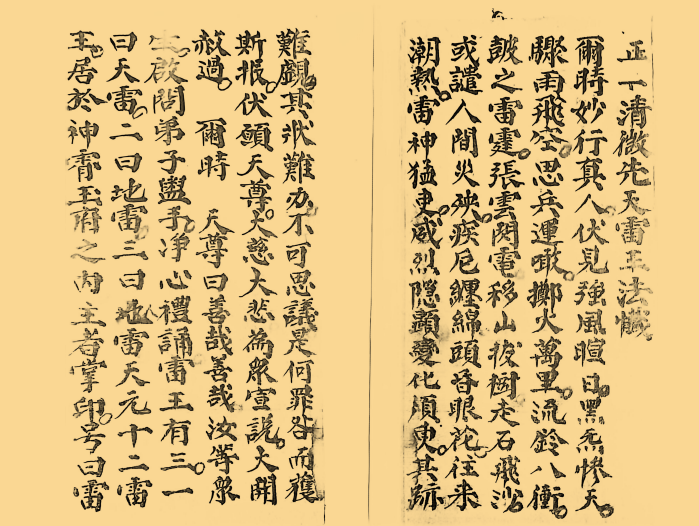 正一清微先天雷王法懺
爾時妙行真人伏見強風暄日黑炁慘天
驟雨飛空思兵運噉擲火萬里流鈴八衝
皷之雷霆張雲閃電移山拔樹走石飛沙
或譴人間災殃疾厄纏綿頭昏眼花往来
潮熱雷神猛吏威烈隱顯變化須臾其跡
難覩其狀難办不可思議是何罪咎而獲
斯报伏願天尊大慈大悲為眾宣説大開
赦過 爾時 天尊曰善哉善哉汝等眾
生啟問弟子盥手净心禮誦雷王有三一
曰天雷二曰地雷三曰地雷天元十二雷
王居於神霄玉府之内主者掌印号曰雷